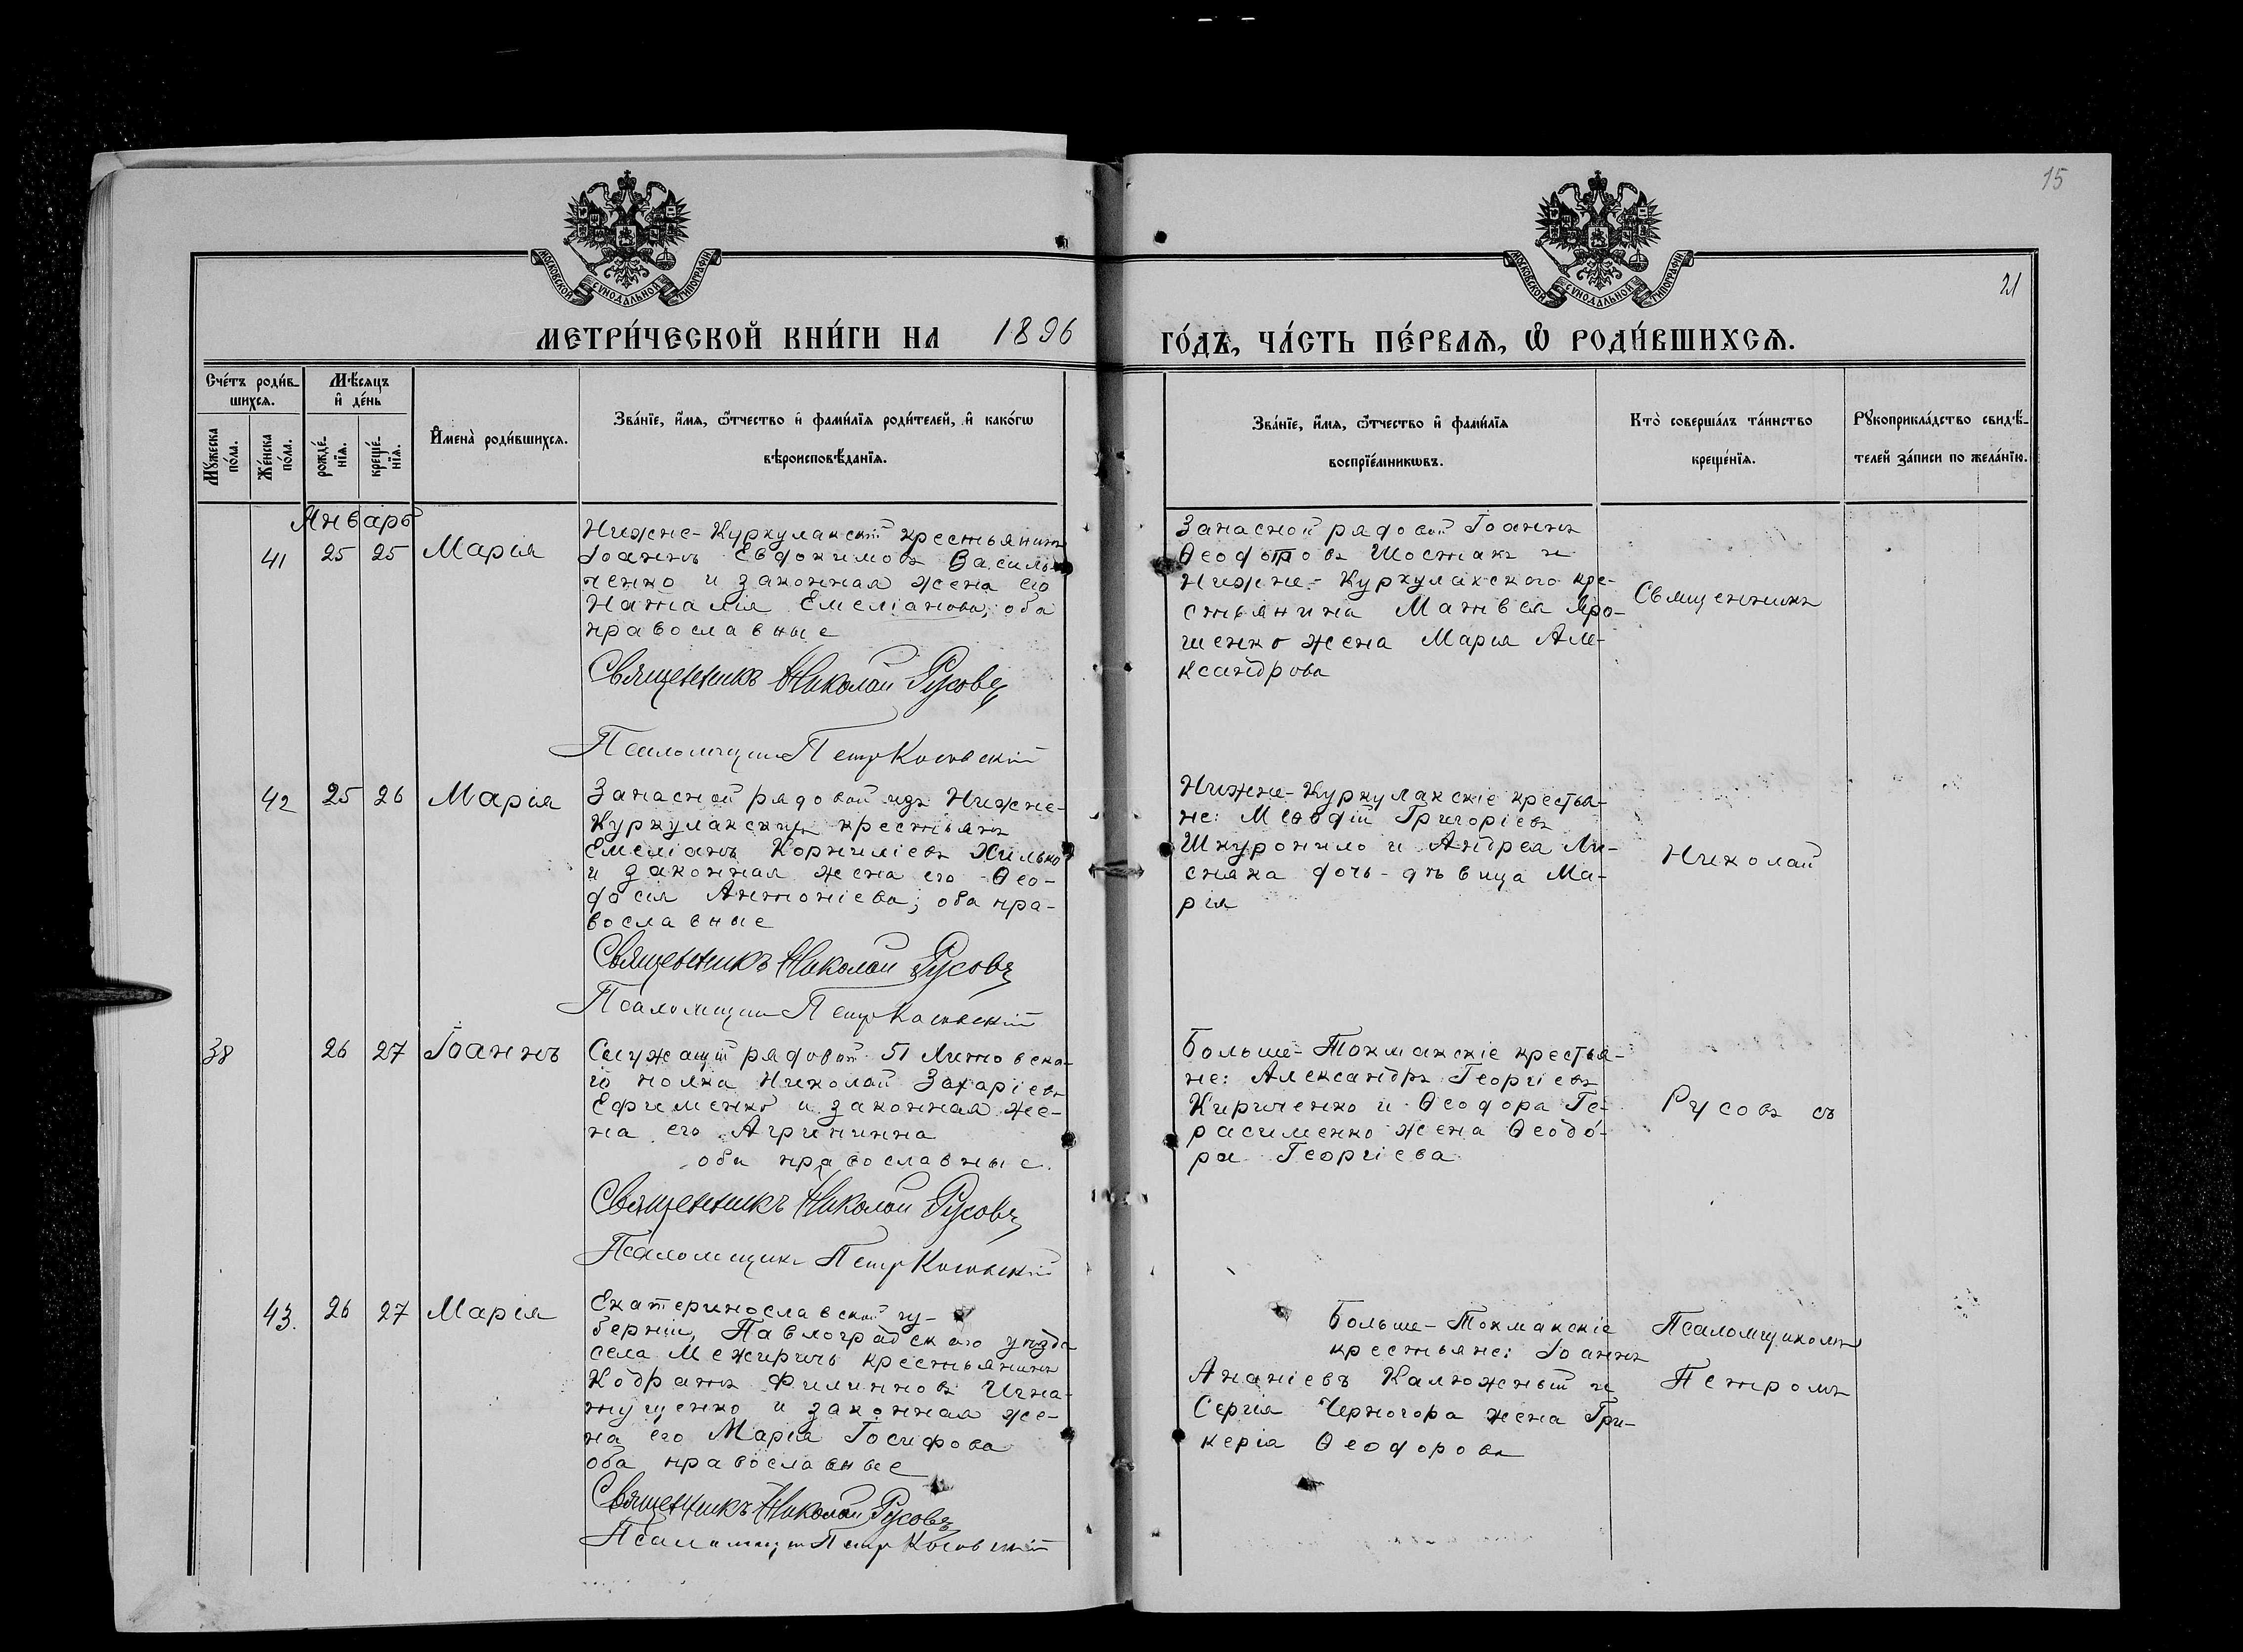 15
МОСКОВСКОЙ СѴНОДАЛЬНОЙ ТИПОГРАФІИ
МОСКОВСКОЙ СѴНОДАЛЬНОЙ ТИПОГРАФІИ
21
МЕТРИ́ЧЕСКОЙ КНИ́ГИ НА 1896
ГО́ДЪ, ЧА́СТЬ ПЕ́РВАѦ, Ѽ РОДИ́ВШИХСѦ.
Сче́тъ роди́в-
шихсѧ.
Мꙋжеска
по́ла.
Же́нска
по́ла.
Мѣ́сѧцъ
и҆ де́нь
рожде́-
нїѧ.
креще́-
нїѧ.
И҆мена̀ роди́вшихсѧ.
Зва́нїе, и҆́мѧ, ѻ҆́тчество и҆ фами́лїѧ роди́телей, и҆ како́гѡ
вѣроисповѣ́данїѧ.
Зва́нїе, и҆́мѧ, ѻ҆́тчество и҆ фами́лїѧ
воспрїе́мникѡвъ.
Кто̀ соверша́лъ та́инство
креще́нїѧ.
Рꙋкоприкла́дство свидѣ́-
телей за́писи по жела́нїю.
Январь
41 25 25 Марія
Нижне-Куркулакскій крестьянинъ
Іоаннъ Евдокимовъ Василь-
ченко и законная жена его
Наталія Емеліанова; оба
православные
Священникъ Николай Русовъ
Псаломщикъ Петръ Косовскій
Запасной рядовой Іоаннъ
Ѳеодотовъ Шостакъ и
Нижне-Куркулакского кре-
стьянина Матвея Яро-
шенко жена Марія Але-
ксандрова
Священникъ
42 25 26 Марія
Запасной рядовой изъ Нижне-
Куркулакскихъ крестьянъ
Емеліанъ Корниліевъ Хилько
и законная жена его Ѳео-
досія Антоніева; оба пра-
вославные
Священникъ Николай Русовъ
Псаломщикъ Петръ Косовскій
Нижне-Куркулакскіе крестья-
не: Меѳодій Григоріевъ
Шкуропило и Андрея Ли-
сняка дочь-дѣвица Ма-
рія
Николай
38 26 27 Іоаннъ
Служащій рядовой 51 Литовска-
го полка Николай Захаріевъ
Ефименко и законная же-
на его Агрипинна
оба православные.
Священникъ Николай Русовъ
Псаломщикъ Петръ Косовскій
Больше-Токмакскіе крестья-
не: Александръ Георгіевъ
Кириченко и Ѳеодора Ге-
расименко жена Ѳеодо-
ра Георгіева
Русовъ съ
43. 26 27 Марія
Екатеринославской гу-
берніи, Павлоградского уѣзда
села Межиричъ крестьянинъ
Кодратъ Филипповъ Игна-
тущенко и законная же-
на его Марія Іосифова
оба православные
Священникъ Николай Русовъ
Псаломщикъ Петръ Косовскій
Больше-Токмакскіе
крестьяне: Іоаннъ
Ананіевъ Калюжный и
Сергія Черногора жена Гли-
керія Ѳеодорова
Псаломщикомъ
Петромъ